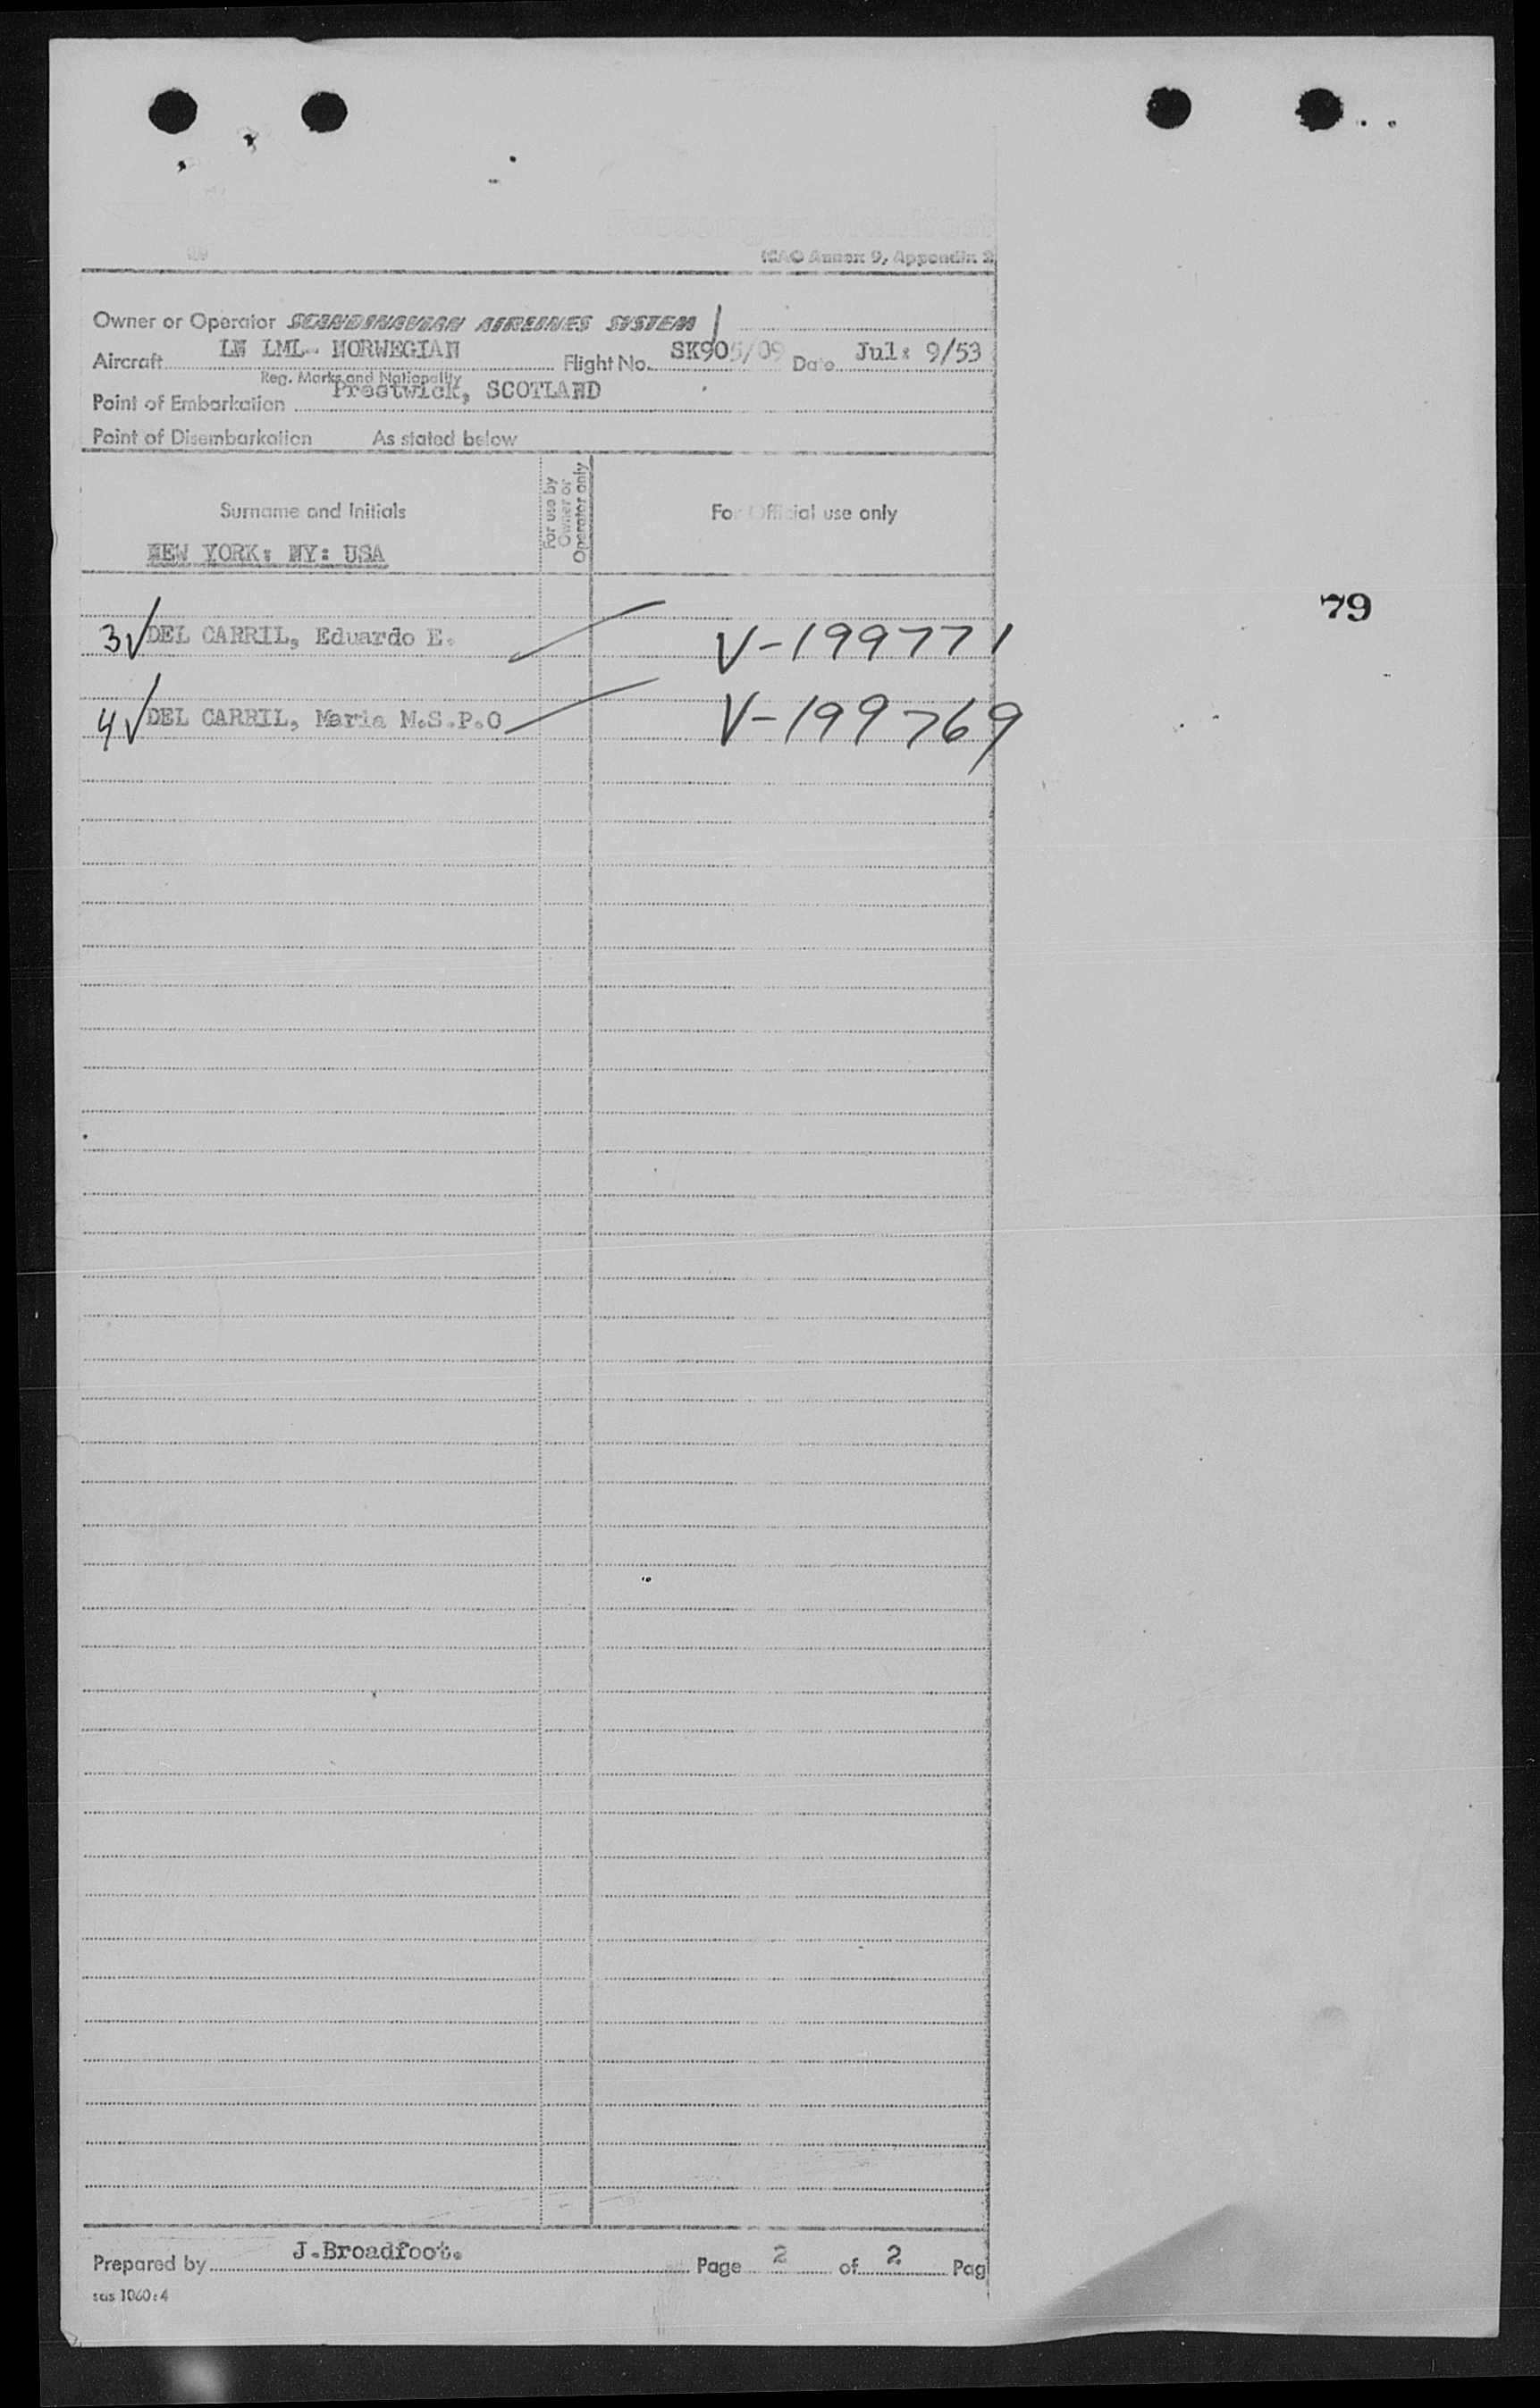 ICAO Annex 9, Appendix 2
Owner or Operator SCANDINAVIAN AIRLINES SYSTEM
Aircraft LN LML- NORWEGIAN Flight No. SK905/09 Date Jul: 9/53
Reg. Marks and Nationality
Point of Embarkation Prestwick, SCOTLAND
Point of Disembarkation As stated below
Surname and Initials
For use by Owner or Operator only
For Official use only
NEW YORK: NY: USA
79
3√ DEL CARRIL, Eduardo E. V-199771
4√ DEL CARRIL, Maria M.S.P.O V-199769
Prepared by J.Broadfoot. Page 2 of 2 Pag
sas 1060:4